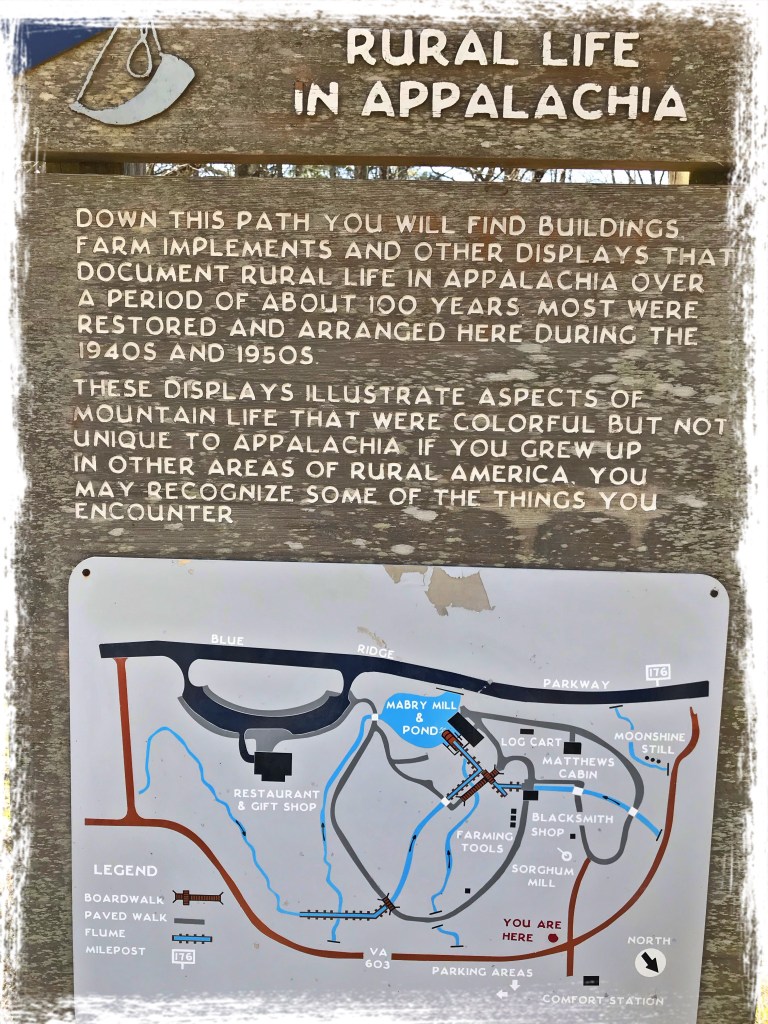 RURAL LIFE
IN APPALACHIA
DOWN THIS PATH YOU WILL FIND BUILDINGS,
FARM IMPLEMENTS AND OTHER DISPLAYS THAT
DOCUMENT RURAL LIFE IN APPALACHIA OVER
A PERIOD OF ABOUT 100 YEARS. MOST WERE
RESTORED AND ARRANGED HERE DURING THE
1940S AND 1950S.
THESE DISPLAYS ILLUSTRATE ASPECTS OF
MOUNTAIN LIFE THAT WERE COLORFUL BUT NOT
UNIQUE TO APPALACHIA. IF YOU GREW UP
IN OTHER AREAS OF RURAL AMERICA, YOU
MAY RECOGNIZE SOME OF THE THINGS YOU
ENCOUNTER
BLUE RIDGE PARKWAY
176
MABRY MILL
&
POND
LOG CART
MATTHEWS
CABIN
MOONSHINE
STILL
RESTAURANT
& GIFT SHOP
FARMING
TOOLS
BLACKSMITH
SHOP
SORGHUM
MILL
LEGEND
BOARDWALK
PAVED WALK
FLUME
MILEPOST
176
YOU ARE
HERE
VA
603
NORTH
PARKING AREAS
COMFORT STATION